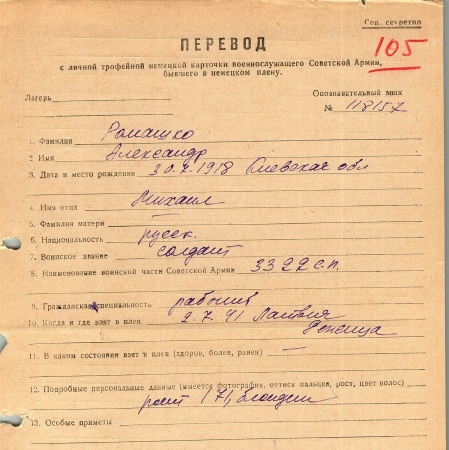 Сов. секретно
105
ПЕРЕВОД
с личной трофейной немецкой карточки военнослужащего Советской Армии,
бывшего в немецком плену.
Лагерь
Опознавательный знак
№ 118157
1. Фамилия Ромашко
2. Имя Александр
3. Дата и место рождения 30.7.1918 Киевская обл
4. Имя отца Михаил
5. Фамилия матери
6. Национальность русск.
7. Воинское звание солдат
8. Наименование воинской части Советской Армии 3322 с.п.
9. Гражданская специальность рабочий
10. Когда и где взят в плен 2.7.41 Латвия
11. В каком состоянии взят в плен (здоров, болен, ранен)
12. Подробные персональные данные (имеется фотография, оттиск пальцев, рост, цвет волос)
рост 171, блондин
13. Особые приметы